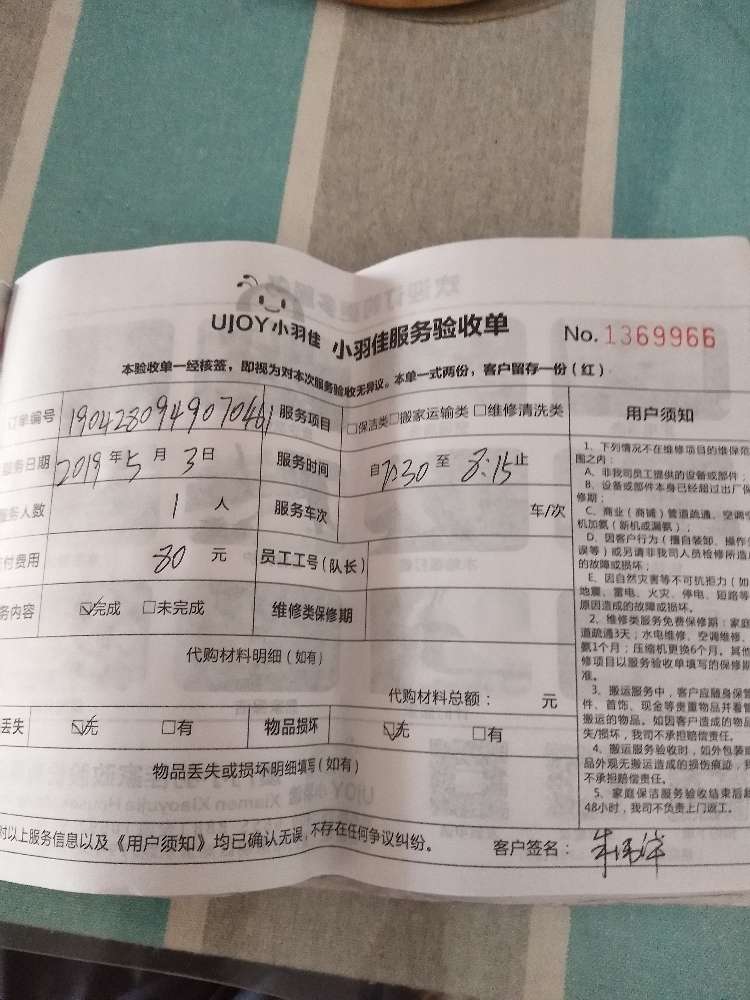 UJOY小羽佳 小羽佳服务验收单 No. 1369966
本验收单一经核签，即视为对本次服务验收无异议。本单一式两份，客户留存一份（红）
订单编号 1904280949070461 服务项目 □保洁类□搬家运输类□维修清洗类 用户须知
服务日期 2019年5月3日 服务时间 自7:30至8:15止
服务人数 1人 服务车次 车/次
付费用 80元 员工工号（队长）
务内容 ☑完成 □未完成 维修类保修期
代购材料明细（如有）
代购材料总额： 元
丢失 ☑无 □有 物品损坏 ☑无 □有
物品丢失或损坏明细填写（如有）
对以上服务信息以及《用户须知》均已确认无误，不存在任何争议纠纷。 客户签名：
1、下列情况不在维修项目的维保范
围之内：
A、非我司员工提供的设备或部件；
B、设备或部件本身已经超过出厂保
修期；
C、商业（商铺）管道疏通、空调空
机加氨（新机或漏氨）；
D、因客户行为（擅自装卸、操作失
误等）或另请非我司人员检修所造成
的故障或损坏；
E、因自然灾害等不可抗拒力（如
地震、雷电、火灾、停电、短路等
原因造成的故障或损坏。
2、维修类服务免费保修期：家庭
道疏通3天；水电维修、空调维修、
氨1个月；压缩机更换6个月。其他
修项目以服务验收单填写的保修期
准。
3、搬运服务中，客户应随身保管
件、首饰、现金等贵重物品并看管
搬运的物品。如因客户造成的物品
失/损坏，我司不承担赔偿责任。
4、搬运服务验收时，如外包装或
品外观无搬运造成的损伤痕迹，我
不承担赔偿责任。
5、家庭保洁服务验收结束后超
48小时，我司不负责上门返工。